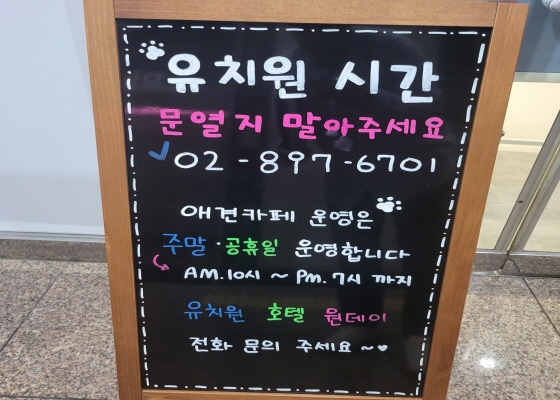 유치원 시간
문열지 말아주세요
✓02-897-6701
애견카페 운영은
주말·공휴일 운영합니다
AM.10시 ~ Pm.7시 까지
유치원 호텔 원데이
전화 문의 주세요~♥